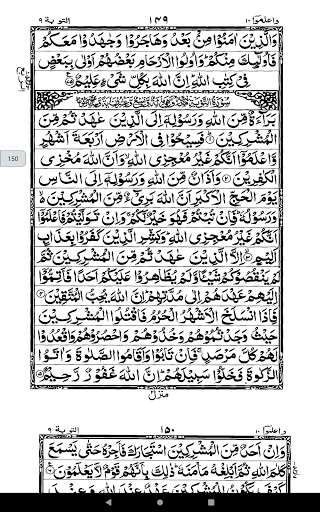 واعلموا ١٠ ١٤٩ التوبة ٩
وَالَّذِينَ اٰمَنُوْا مِنْۢ بَعْدُ وَهَاجَرُوْا وَجٰهَدُوْا مَعَكُمْ
فَاُولٰٓئِكَ مِنْكُمْ ؕ وَاُولُوا الْاَرْحَامِ بَعْضُهُمْ اَوْلٰى بِبَعْضٍ
فِيْ كِتٰبِ اللّٰهِ ؕ اِنَّ اللّٰهَ بِكُلِّ شَيْءٍ عَلِيْمٌ
بَرَآءَةٌ مِّنَ اللّٰهِ وَرَسُوْلِهٖٓ اِلَى الَّذِيْنَ عٰهَدْتُّمْ مِّنَ
الْمُشْرِكِيْنَ ؕ فَسِيْحُوْا فِي الْاَرْضِ اَرْبَعَةَ اَشْهُرٍ
وَّاعْلَمُوْٓا اَنَّكُمْ غَيْرُ مُعْجِزِي اللّٰهِ ۙ وَاَنَّ اللّٰهَ مُخْزِي
الْكٰفِرِيْنَ ۝٢ وَاَذَانٌ مِّنَ اللّٰهِ وَرَسُوْلِهٖٓ اِلَى النَّاسِ
يَوْمَ الْحَجِّ الْاَكْبَرِ اَنَّ اللّٰهَ بَرِيْٓءٌ مِّنَ الْمُشْرِكِيْنَ ۙ
وَرَسُوْلُهٗ ؕ فَاِنْ تُبْتُمْ فَهُوَ خَيْرٌ لَّكُمْ ۚ وَاِنْ تَوَلَّيْتُمْ فَاعْلَمُوْٓا
اَنَّكُمْ غَيْرُ مُعْجِزِي اللّٰهِ ؕ وَبَشِّرِ الَّذِيْنَ كَفَرُوْا بِعَذَابٍ
اَلِيْمٍ ۝٣ اِلَّا الَّذِيْنَ عٰهَدْتُّمْ مِّنَ الْمُشْرِكِيْنَ ثُمَّ
لَمْ يَنْقُصُوْكُمْ شَيْـًٔا وَّلَمْ يُظَاهِرُوْا عَلَيْكُمْ اَحَدًا فَاَتِمُّوْٓا
اِلَيْهِمْ عَهْدَهُمْ اِلٰى مُدَّتِهِمْ ؕ اِنَّ اللّٰهَ يُحِبُّ الْمُتَّقِيْنَ ۝٤
فَاِذَا انْسَلَخَ الْاَشْهُرُ الْحُرُمُ فَاقْتُلُوا الْمُشْرِكِيْنَ
حَيْثُ وَجَدْتُّمُوْهُمْ وَخُذُوْهُمْ وَاحْصُرُوْهُمْ وَاقْعُدُوْا
لَهُمْ كُلَّ مَرْصَدٍ ۚ فَاِنْ تَابُوْا وَاَقَامُوا الصَّلٰوةَ وَاٰتَوُا
الزَّكٰوةَ فَخَلُّوْا سَبِيْلَهُمْ ؕ اِنَّ اللّٰهَ غَفُوْرٌ رَّحِيْمٌ ۝٥
منزل
150
واعلموا ١٠ ١٥٠ التوبة ٩
وَاِنْ اَحَدٌ مِّنَ الْمُشْرِكِيْنَ اسْتَجَارَكَ فَاَجِرْهُ حَتّٰى يَسْمَعَ
كَلٰمَ اللّٰهِ ثُمَّ اَبْلِغْهُ مَاْمَنَهٗ ؕ ذٰلِكَ بِاَنَّهُمْ قَوْمٌ لَّا يَعْلَمُوْنَ ۝٦